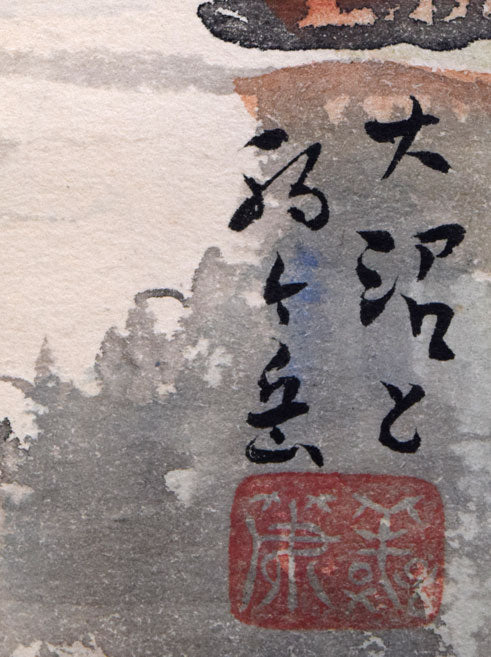 大沼と
駒ヶ岳